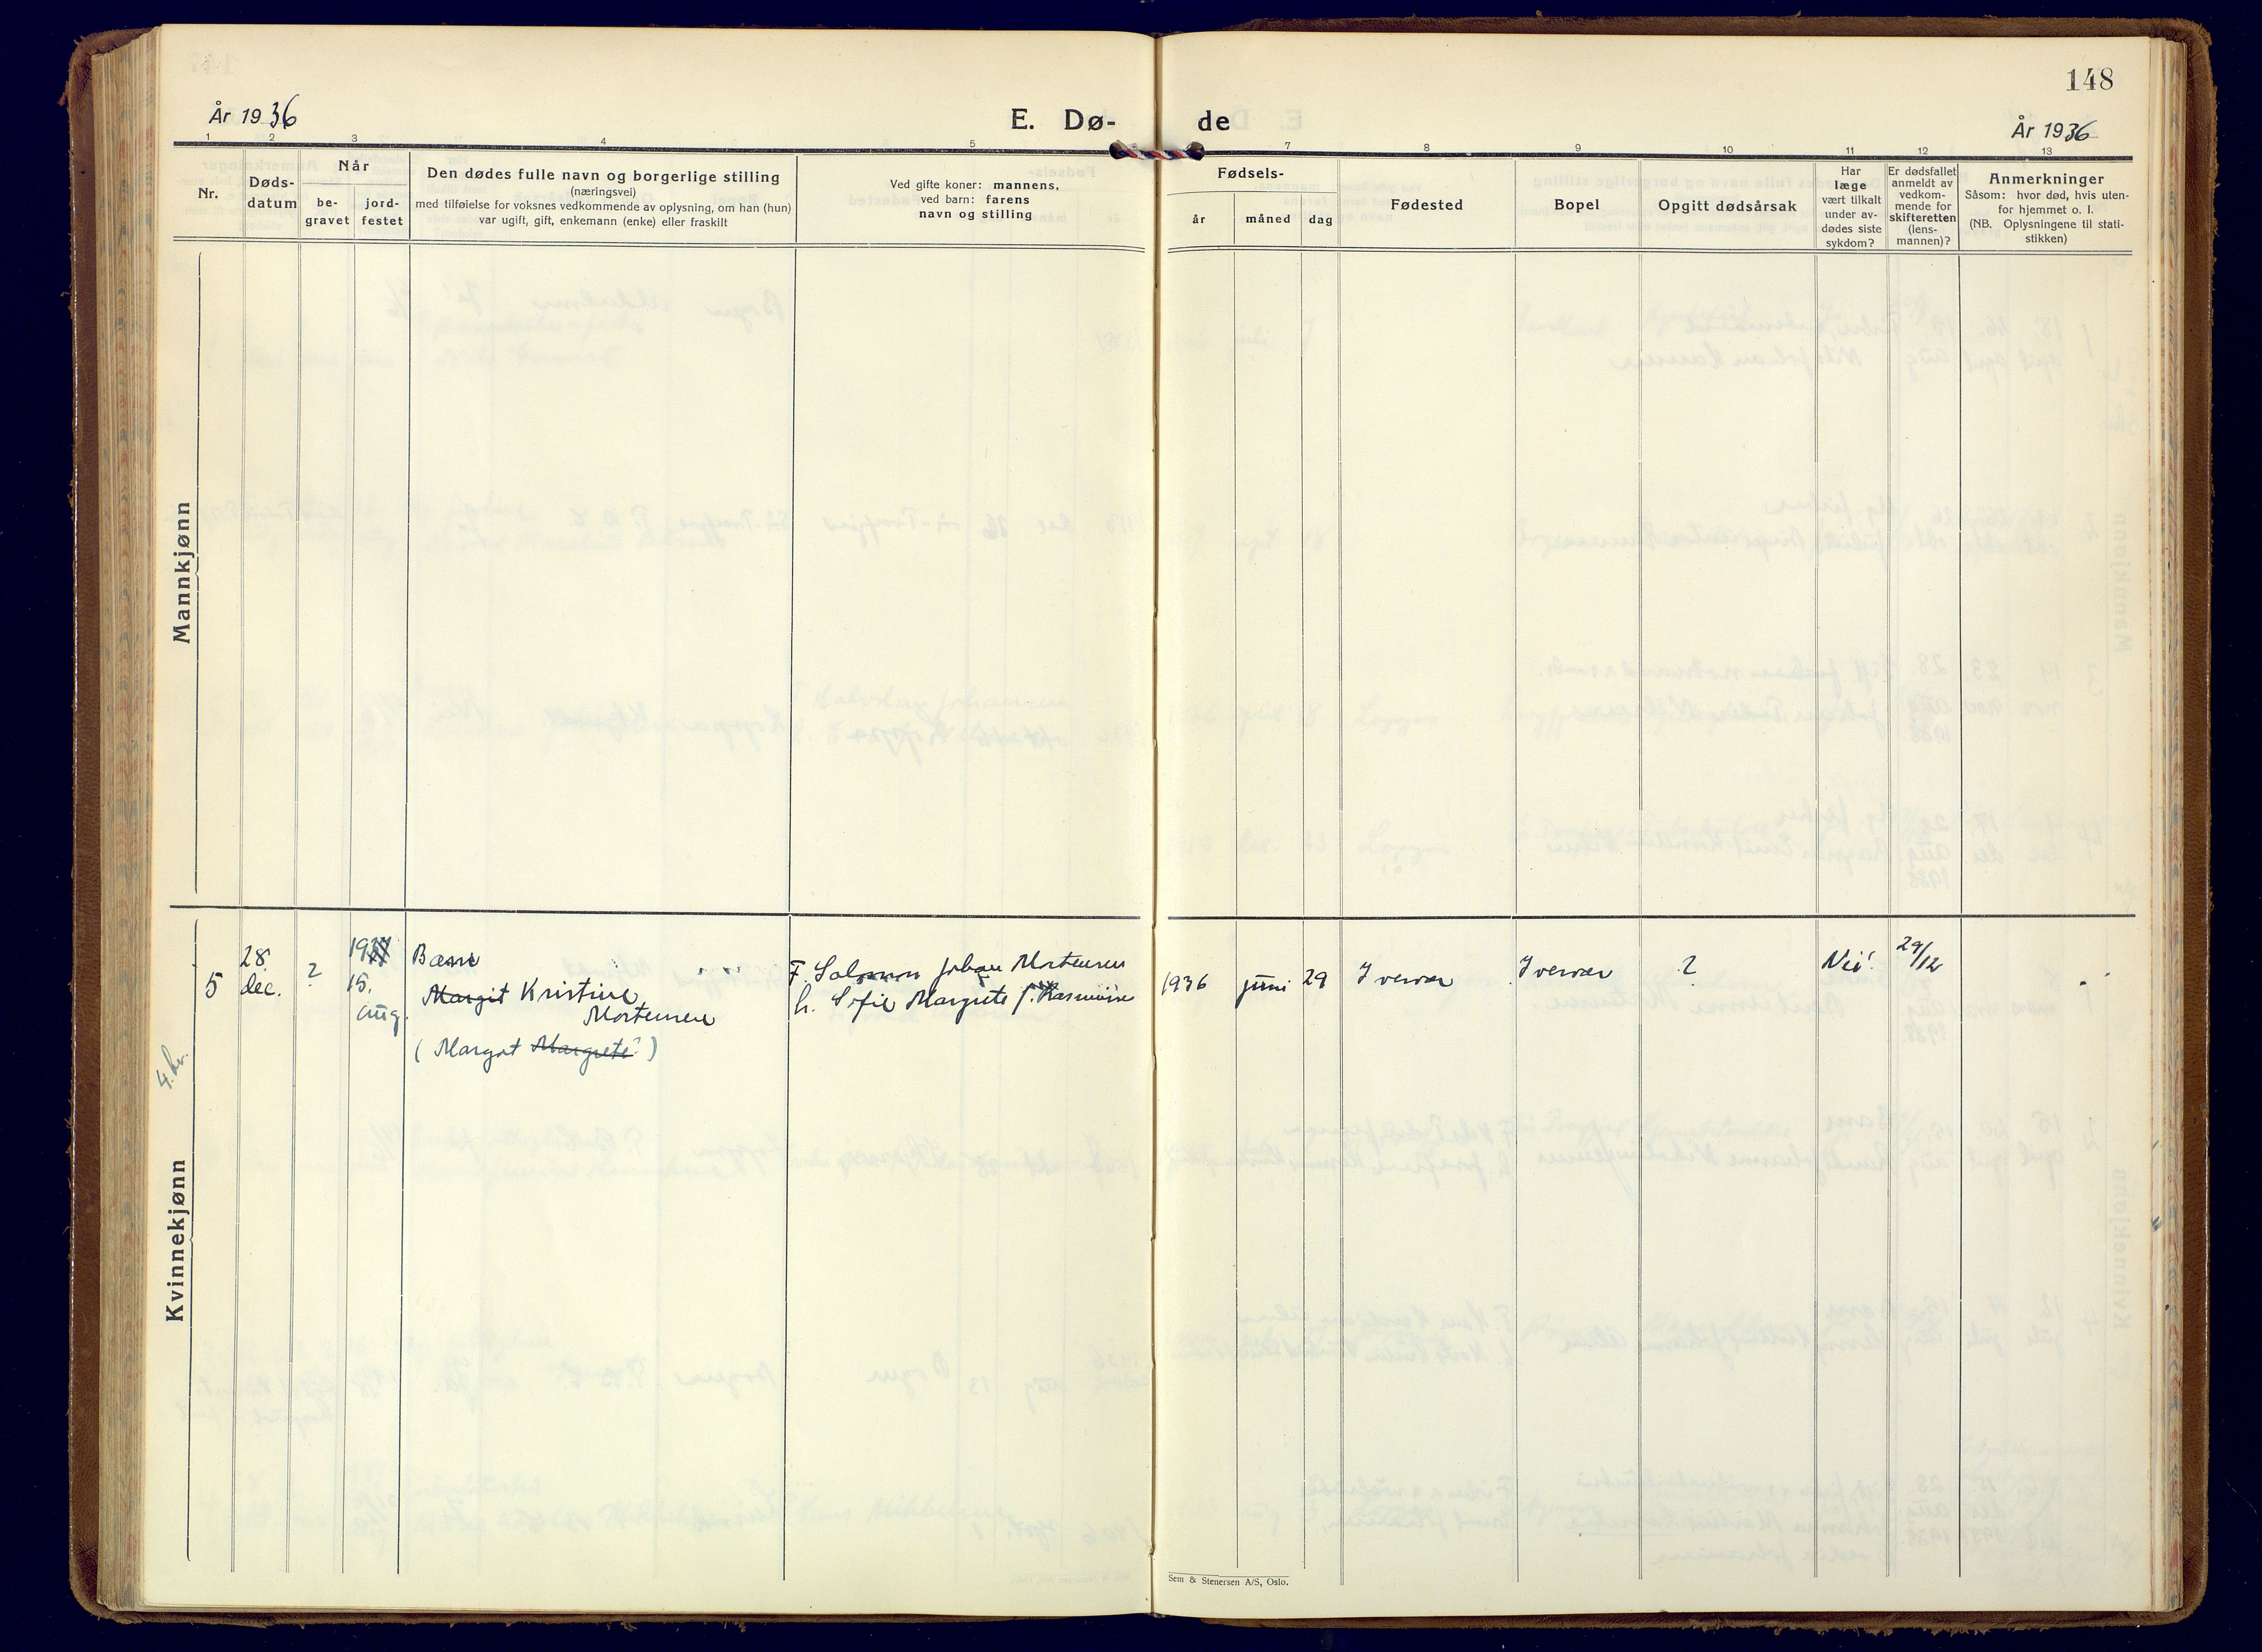 148
År 1936
E. Dø-
de
År 1936
1 2 3 4 5 7 8 9 10 11 12 13
Nr.
Døds-
datum
Når
be-
gravet
jord-
festet
Den dødes fulle navn og borgerlige stilling
(næringsvei)
med tilføielse for voksnes vedkommende av oplysning, om han (hun)
var ugift, gift, enkemann (enke) eller fraskilt
Ved gifte koner: mannens,
ved barn: farens
navn og stilling
Fødsels-
år
måned
dag
Fødested
Bopel
Opgitt dødsårsak
Har
læge
vært tilkalt
under av-
dødes siste
sykdom?
Er dødsfallet
anmeldt av
vedkom-
mende for
skifteretten
(lens-
mannen)?
Anmerkninger
Såsom: hvor død, hvis uten-
for hjemmet o. l.
(NB. Oplysningene til stati-
stikken)
Mannkjønn
Kvinnekjønn
4. kv.
5
28
dec.
?
15.
aug.
Barn
Margit Kristine
Mortensen
(Margot Margrete?)
F. Salomon Johan Mortensen
h. Sofie Margrete f. Rasmussen
1936
juni
29
Iverver
Iverver
?
Nei!
29/12
Sem & Stenersen A/S, Oslo.